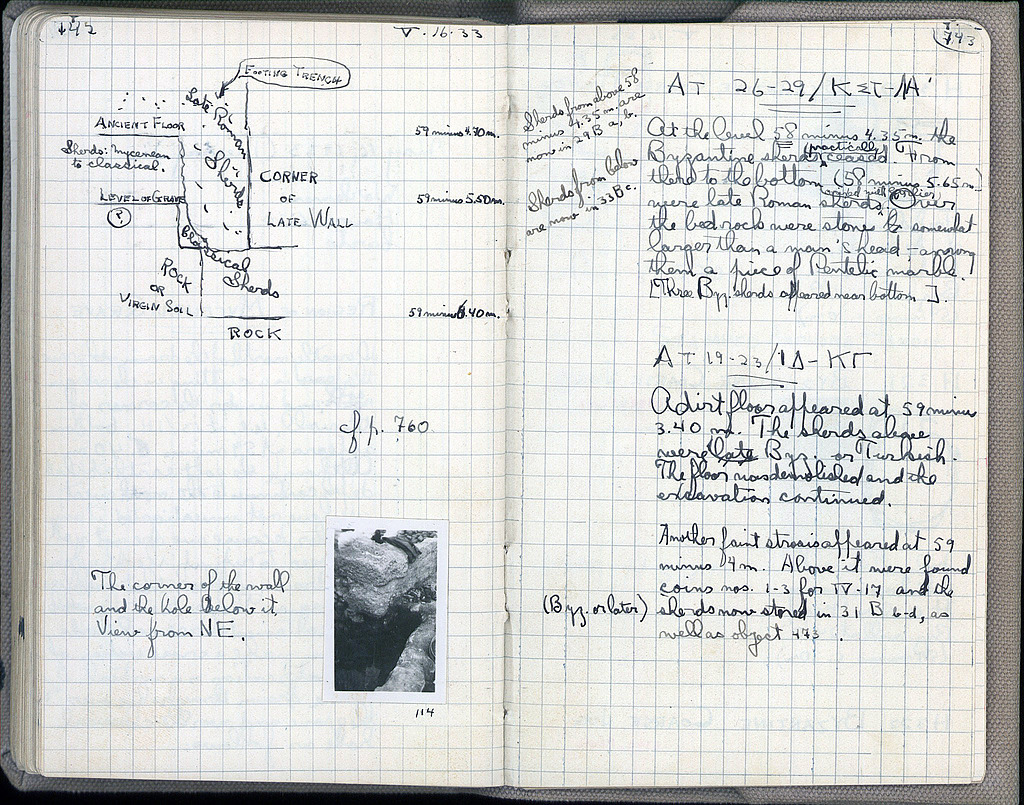 742
V. 16. 33
FOOTING TRENCH
Late Roman
Sherds
ANCIENT FLOOR
Sherds: mycenean
to classical.
LEVEL OF GRAVE
(?)
CORNER
OF
LATE WALL
Classical
Sherds
ROCK
OR
VIRGIN SOIL
ROCK
59 minus 4.70 m.
59 minus 5.50 m.
59 minus 6.40 m.
cf. p. 760
The corner of the wall
and the hole below it.
View from NE.
114
743
Sherds from above 58
minus 4.35 m. are
now in 29 B a, b.
Sherds from below
are now in 33 B c.
AT 26-29/ΚΣΤ-ΛΑ'
At the level 58 minus 4.35 m. the
Byzantine sherds (practically) ceased. From
there to the bottom (58 minus 5.65 m.)
were late Roman sherds, Over
the bedrock were stones somewhat
larger than a man's head - among
them a piece of Pentelic marble.
[Three Byz. sherds appeared near bottom.].
AT 19-23/ΙΔ-ΚΓ
A dirt floor appeared at 59 minus
3.40 m. The sherds above
were late Byz. or Turkish.
The floor was demolished and the
excavation continued.
Another faint strosis appeared at 59
minus 4 m. Above it were found
coins nos. 1-3 for IV-17 and the
(Byz. or later) sherds now stored in 31 B b-d, as
well as object 473.